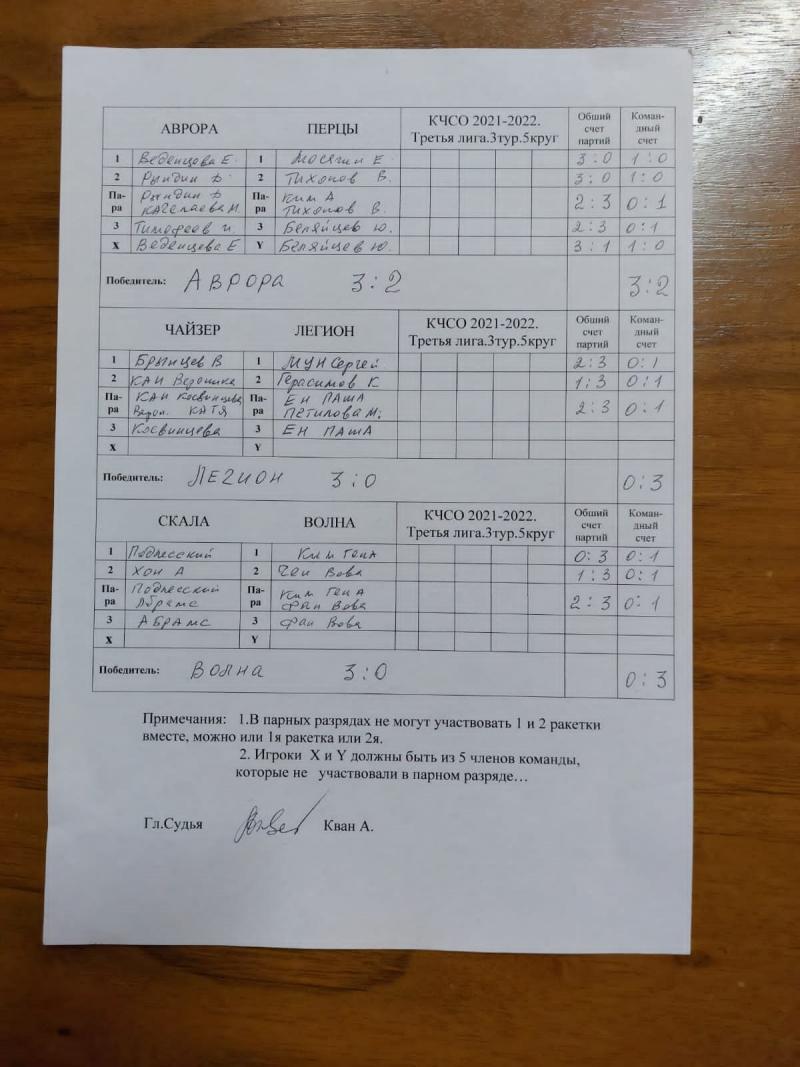 АВРОРА ПЕРЦЫ КЧСО 2021-2022. Третья лига.3тур.5круг Общий счет партий Коман-дный счет
1 Веденцова Е. 1 Мосягин Е. 3:0 1:0
2 Рындин Ф 2 Тихонов В. 3:0 1:0
Па-ра Рындин Ф Па-ра Ким А 2:3 0:1
Тихонов В.
3 Тимофеев И. 3 Беляйцев Ю. 2:3 0:1
X Веденцева Е Y Беляйцев Ю. 3:1 1:0
Победитель: АВРОРА 3:2 3:2
ЧАЙЗЕР ЛЕГИОН КЧСО 2021-2022. Третья лига.3тур.5круг Общий счет партий Коман-дный счет
1 Брынцев В 1 МУН Сергей 2:3 0:1
2 КАН Вероника 2 Герасимов К 1:3 0:1
Па-ра КАН Косвинцева Па-ра ЕН ПАША 2:3 0:1
Верон. КАТЯ Петилова М.
3 Косвинцева 3 ЕН ПАША
X Y
Победитель: ЛЕГИОН 3:0 0:3
СКАЛА ВОЛНА КЧСО 2021-2022. Третья лига.3тур.5круг Общий счет партий Коман-дный счет
1 Подлесский 1 Ким ГЕНА 0:3 0:1
2 Хон А 2 Чен Вова 1:3 0:1
Па-ра Подлесский Па-ра Ким Гена 2:3 0:1
Абрамс Фан Вова
3 АБРАМС 3 Фан Вова
X Y
Победитель: ВОЛНА 3:0 0:3
Примечания: 1.В парных разрядах не могут участвовать 1 и 2 ракетки
вместе, можно или 1я ракетка или 2я.
2. Игроки X и Y должны быть из 5 членов команды,
которые не участвовали в парном разряде…
Гл.Судья Кван А.